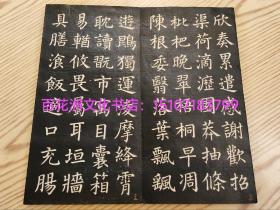 欣奏累遣感謝歡招
渠荷滴瀝園莽抽條
枇杷晚翠梧桐早凋
陳根委翳落葉飄颻
遊鵾獨運凌摩絳霄
耽讀翫市寓目囊箱
易輶攸畏屬耳垣牆
具膳飡飯適口充腸